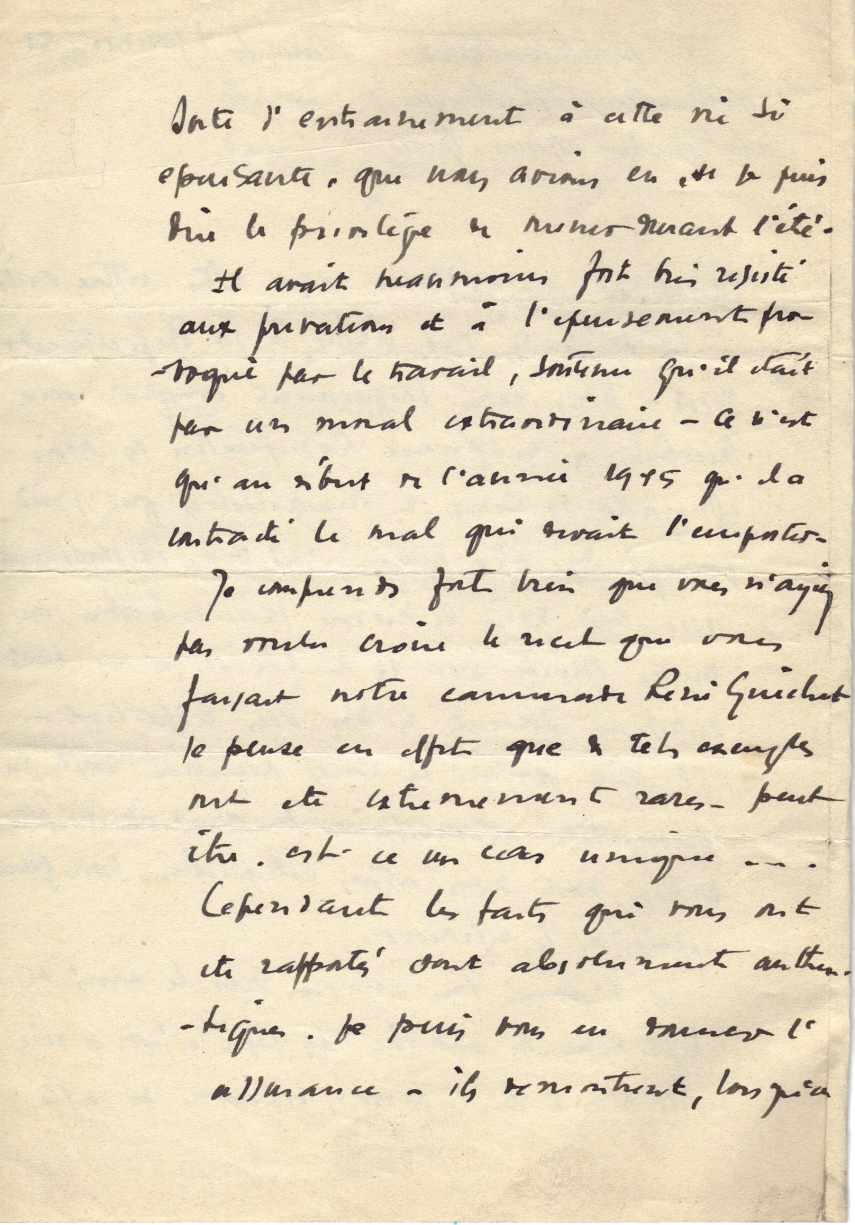 sorte d'entrainement à cette vie si
epuisante, que nous avions eu, si je puis
dire le privilège de mener durant l'été.
Il avait neanmoins fort bien resisté
aux privations et à l'epuisement pro
-voqué par le travail, soutenu qu'il était
par un moral extraordinaire - Ce n'est
qu'au début de l'année 1945 qu'il a
contracté le mal qui devait l'emporter.
Je comprends fort bien que vous n'ayiez
pas voulu croire le recit que vous
faisait notre camarade René Guichet
je pense en effet que de tels exemples
ont eté extremement rares - peut
être. est-ce un cas unique ....
Cependant les faits qui vous ont
eté rapportés sont absolument authen-
-tiques. Je puis vous en donner l'
assurance - ils demontrent, lorsqu'on